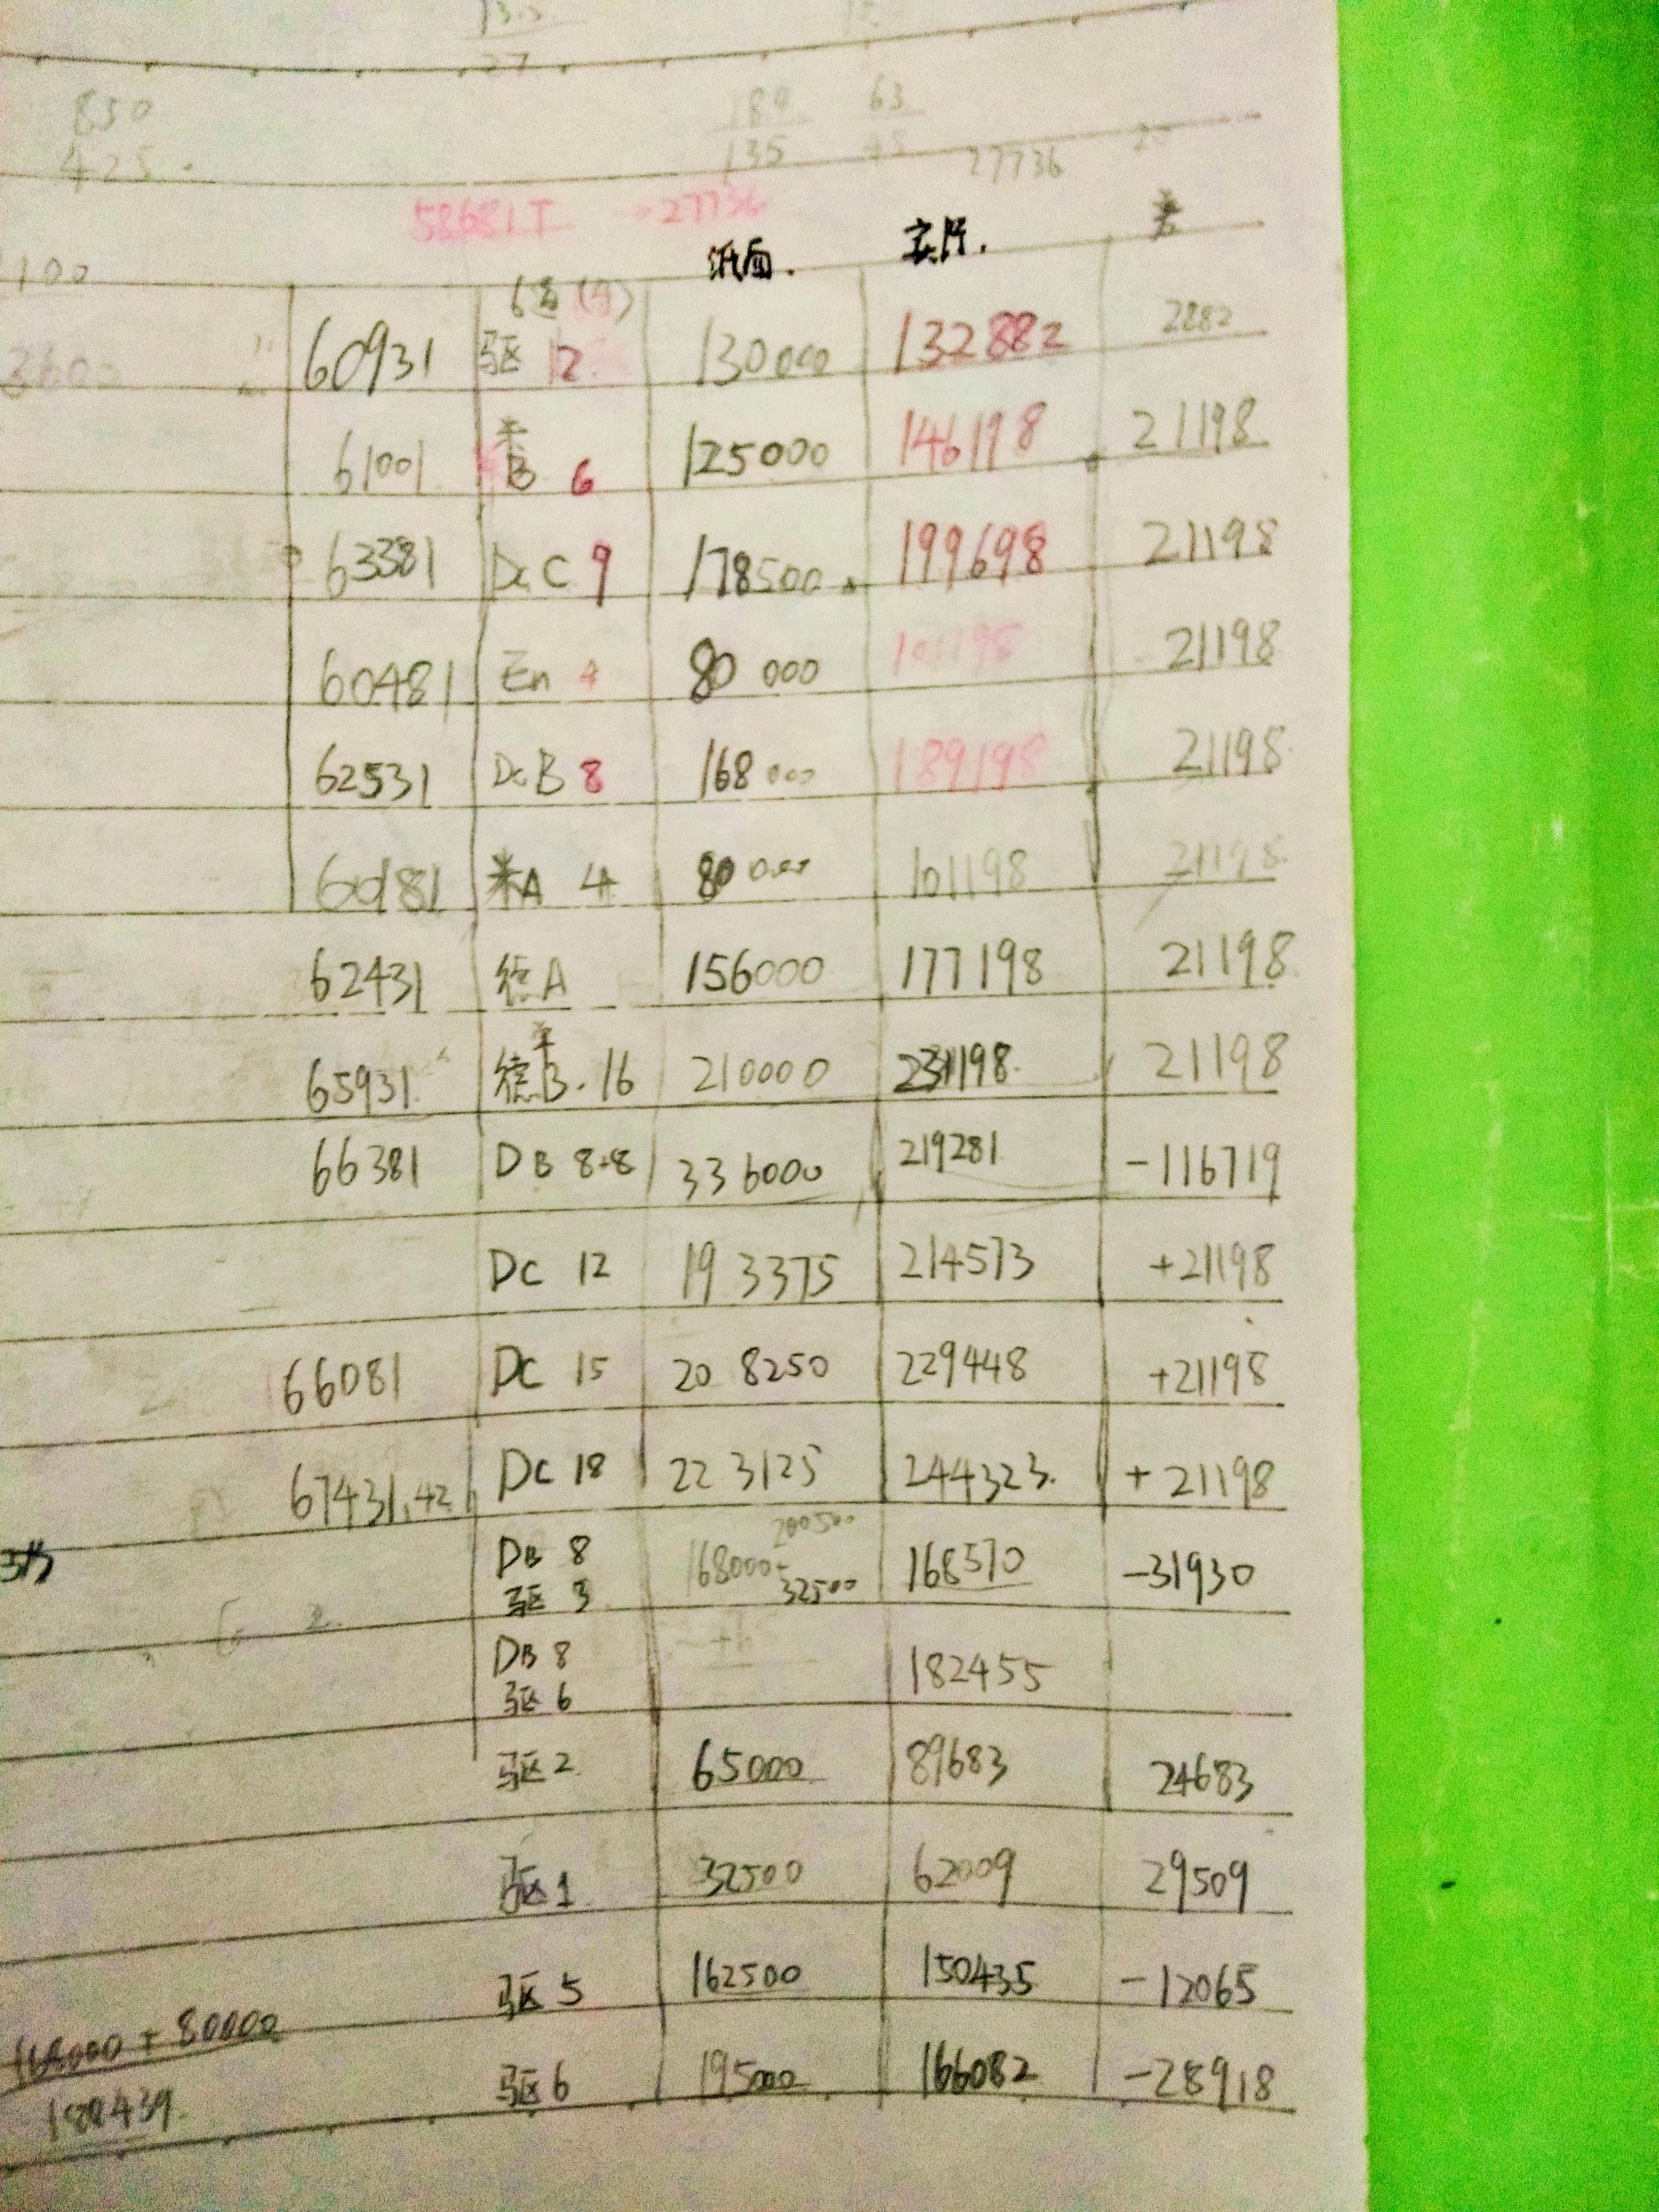 13.5
27
850
425.
189 63
135 45 27736
58681T → 27736
纸面. 实际. 差
1100
3600
60931 驱 12 130000 132882 2882
61001 米B 6 125000 146198 21198
63381 DC C 9 178500 199698 21198
60481 En 4 80 000 101198 21198
62531 DC B 8 168000 189198 21198
60181 米A 4 80000 101198 21198
62431 德A 156000 177198 21198
65931 德B. 16 210000 231198 21198
66381 DB 8+8 336000 219281 -116719
DC 12 193375 214573 +21198
66081 DC 15 208250 229448 +21198
67431.42 DC 18 223125 244323. +21198
200500
DB 8 168000+ 168570 -31930
驱 3 32500
DB 8 182455
驱 6
驱2 65000 89683 24683
驱1 32500 62009 29509
驱5 162500 150435 -12065
168000+80000
驱6 195000 166082 -28918
188439.